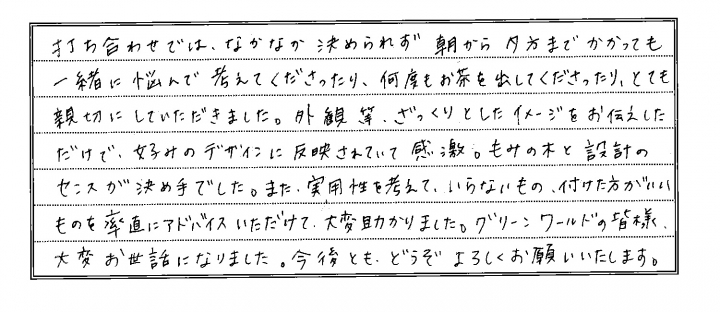 打ち合わせでは、なかなか決められず朝から夕方までかかっても
一緒に悩んで考えてくださったり、何度もお茶を出してくださったり、とても
親切にしていただきました。外観等、ざっくりとしたイメージをお伝えした
だけで、好みのデザインに反映されていて感激。もみの木と設計の
センスが決め手でした。また、実用性を考えて、いらないもの、付けた方がいい
ものを率直にアドバイスいただけて、大変助かりました。グリーンワールドの皆様、
大変お世話になりました。今後とも、どうぞよろしくお願いいたします。